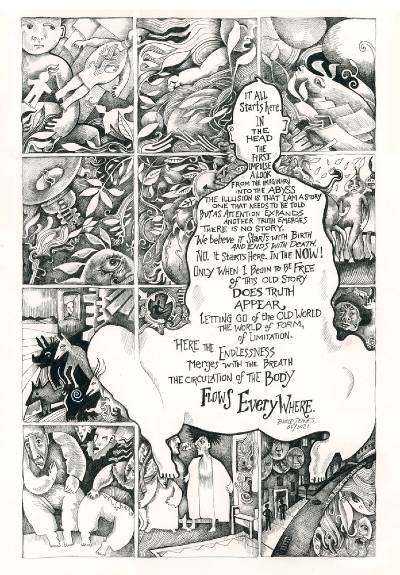 IT ALL
Starts here.
IN
THE
HEAD
THE
FIRST
IMPULSE
A LOOK
FROM THE IMAGINARY
INTO THE ABYSS
THE ILLUSION IS THAT I AM A STORY
ONE THAT NEEDS TO BE TOLD
BUT AS ATTENTION EXPANDS
ANOTHER TRUTH EMERGES
THERE IS NO STORY.
We believe it STARTS WITH BIRTH
AND ENDS WITH DEATH.
NO. It STARTS HERE. IN THE NOW!
ONLY WHEN I BEGIN TO BE FREE
OF THIS OLD STORY
DOES TRUTH
APPEAR,
LETTING GO of the OLD WORLD
THE WORLD OF FORM,
OF LIMITATION.
HERE THE ENDLESSNESS
Merges WITH THE BREATH
THE CIRCULATION OF THE BODY
FLOWS EVERYWHERE.